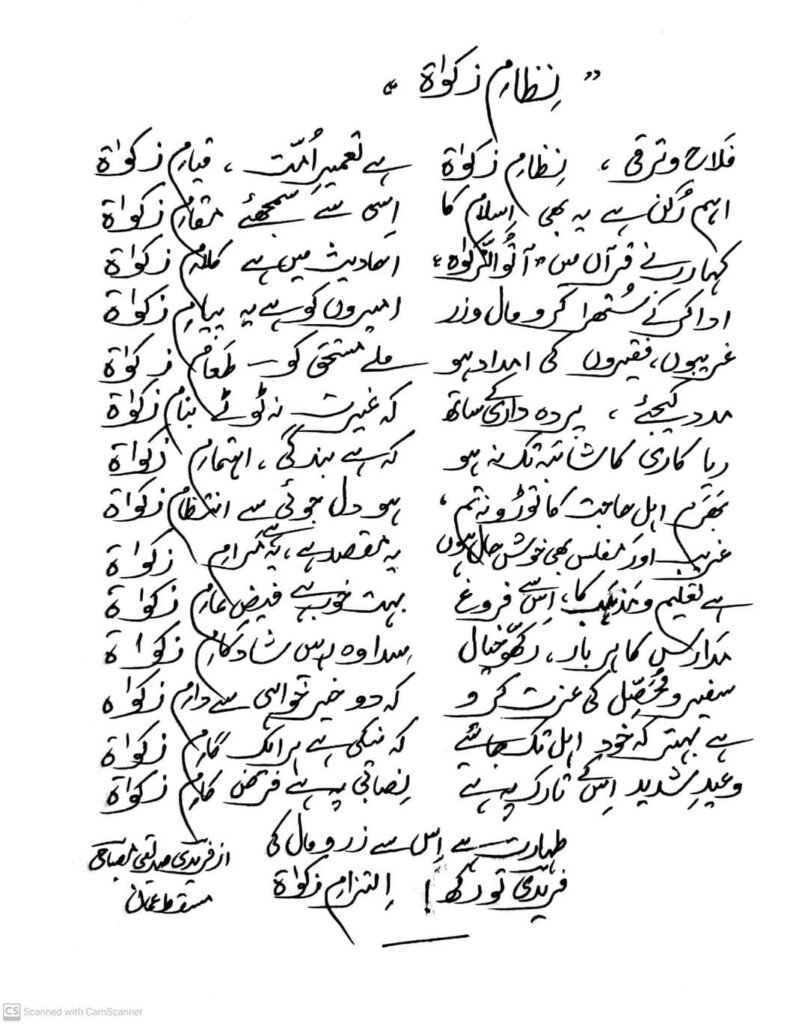 "نِظامِ زکوٰۃ"
فَلاح و ترقی ، نِظامِ زکوٰۃ ہے تعمیرِ اُمّت ، قیامِ زکوٰۃ
اہم رُکن ہے یہ بھی اِسلام کا اِسی سے سمجھئے مقامِ زکوٰۃ
کہا رب نے قرآں میں "آتُوا الزَّکوٰۃ" احادیث میں ہے کلامِ زکوٰۃ
ادا کرکے سُتھرا کرو مال و زر امیروں کو ہے یہ پیامِ زکوٰۃ
غریبوں، فقیروں کی امداد ہو ملے مستحق کو طَعامِ زکوٰۃ
مدد کیجئے ، پردہ داری کے ساتھ کہ غیرت نہ ٹوٹے بنامِ زکوٰۃ
ریا کاری کا شائبہ تک نہ ہو کہ ہے بندگی ، اہتمامِ زکوٰۃ
بھَرَم اہلِ حاجت کا توڑو نہ تم ، ہو دل جوئی سے انتظامِ زکوٰۃ
غریب اور مُفلس بھی خوش حال ہوں یہ مقصد ہے، یہ مَرامِ زکوٰۃ
ہے تعلیم و مَذہب کا، اِس سے فروغ بہت خوب ہے فیضِ عامِ زکوٰۃ
مَدارِس کا ہر بار ، رکھّو خیال سدا وہ رہیں شاد کامِ زکوٰۃ
سفیر و مُحَصِّل کی عزت کرو کہ دو خیر خواہی سے دامِ زکوٰۃ
ہے بہتر کہ خود اہل تک جائیے کہ نیکی ہے ہر ایک گامِ زکوٰۃ
وعیدِ شدید اِس کے تارک پہ ہے نِصابی پہ ہے فرض کامِ زکوٰۃ
طہارت ہے اِس سے زر و مال کی
فریدی تو رکھ ! اِلتزامِ زکوٰۃ
از فریدی صدیقی مصباحی
مسقط عمان
CS Scanned with CamScanner